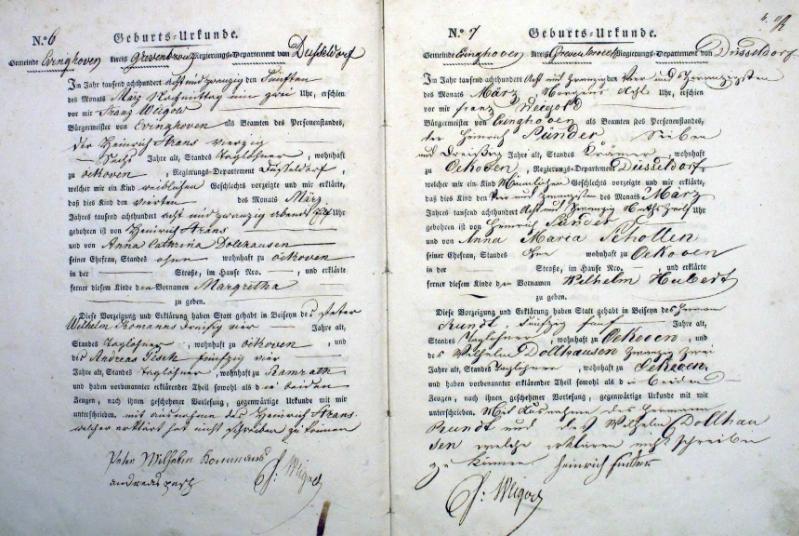 N.º 6 Geburts-Urkunde.
Gemeinde Evinghoven Kreis Grevenbroich Regierungs-Departement von Düsseldorf
In Jahr tausend achthundert acht und zwanzig den Fünften
des Monats März Nachmittag um zwei Uhr, erschien
vor mir Franz Weigold
Bürgermeister von Evinghoven als Beamten des Personenstandes,
der Heinrich Strans vierzig
sechs Jahre alt, Standes Taglöhner, wohnhaft
zu Oekoven, Regierungs-Departement Düsseldorf,
welcher mir ein Kind weiblichen Geschlechts vorzeigte und mir erklärte,
daß dies Kind den vierten des Monats März
Jahres tausend achthundert acht und zwanzig abends Uhr
gebohren ist von Heinrich Strans
und von Anna Cathrina Dollhausen
seiner Ehefrau, Standes ohne wohnhaft zu Oekoven
in der Straße, im Hause Nro. , und erklärte
ferner diesem Kinde den Vornamen Margretha
zu geben.
Diese Vorzeigung und Erklärung haben Statt gehabt in Beiseyn des Peter
Wilhelm Komanns dreisig vier Jahre alt,
Standes Taglöhner, wohnhaft zu Oekoven, und
des Andreas Pesch fünfzig vier
Jahre alt, Standes Taglöhner, wohnhaft zu Ramrath
und haben vorbenannter erklärender Theil sowohl als die beiden
Zeugen, nach ihnen geschehener Vorlesung, gegenwärtige Urkunde mit mir
unterschrieben, mit Ausnahme des Heinrich Strans
welcher erklärt hat nicht schreiben zu können
Peter Wilhelm Kommans
andreas pesch
F: Weigold
N.º 7 Geburts-Urkunde.
Gemeinde Evinghoven Kreis Grevenbroich Regierungs-Departement von Düsseldorf
In Jahr tausend achthundert Acht und Zwanzig den Vier und Zwanzigsten
des Monats März, Morgens Acht Uhr, erschien
vor mir Franz Weigold
Bürgermeister von Evinghoven als Beamten des Personenstandes,
der Heinrich Pünder, Sieben
und Dreißig Jahre alt, Standes Krämer, wohnhaft
zu Oekoven, Regierungs-Departement Düsseldorf,
welcher mir ein Kind Männlichen Geschlechts vorzeigte und mir erklärte,
daß dies Kind den Vier und Zwanzigsten des Monats März
Jahres tausend achthundert Acht und Zwanzig Uhr
gebohren ist von Heinrich Pünder
und von Anna Maria Schotten
seiner Ehefrau, Standes Ohne wohnhaft zu Oekoven
in der Straße, im Hause Nro. , und erklärte
ferner diesem Kinde den Vornamen Wilhelm Hubert
zu geben.
Diese Vorzeigung und Erklärung haben Statt gehabt in Beiseyn des Hermann
Kundt, fünfzig fünf Jahre alt,
Standes Taglöhner, wohnhaft zu Oekoven, und
des Wilhelm Dollhausen Zwanzig Zwei
Jahre alt, Standes Taglöhner, wohnhaft zu Oekoven,
und haben vorbenannter erklärender Theil sowohl als die beiden
Zeugen, nach ihnen geschehener Vorlesung, gegenwärtige Urkunde mit mir
unterschrieben. Mit Ausnahme des Hermann
Kundt und des Wilhelm Dollhau
sen welche erklären nicht schreiben
zu können Heinrich Pünder
F: Weigold